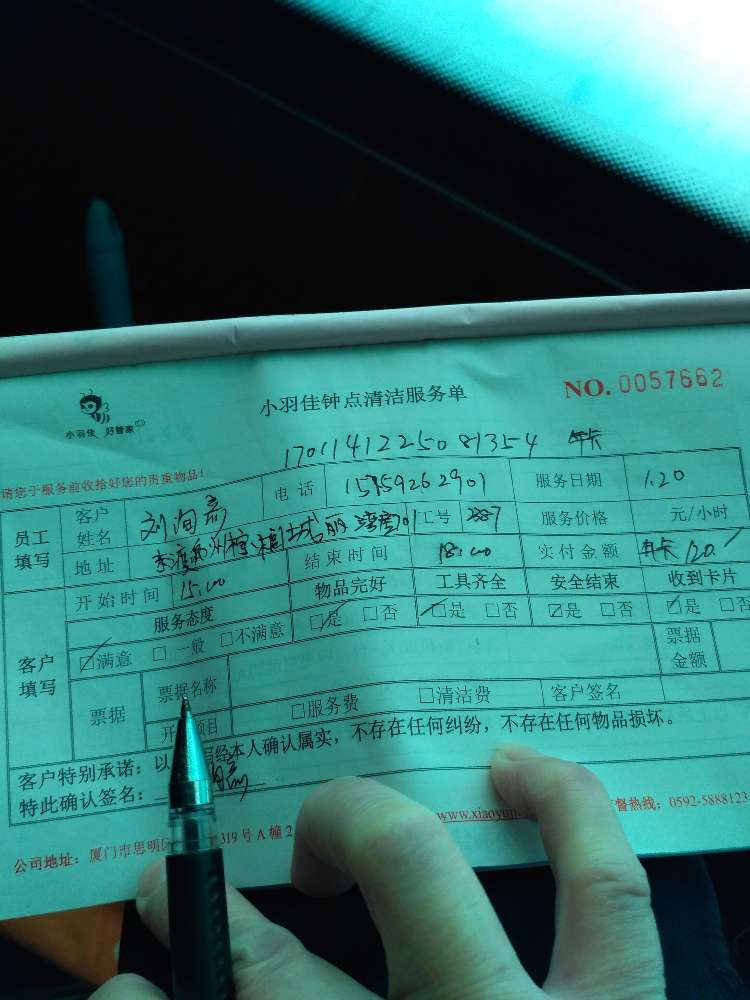 小羽佳 好管家
小羽佳钟点清洁服务单
NO. 0057662
请您于服务前收拾好您的贵重物品!
17011412250 81354 年卡
员工填写 客户姓名 刘洵 电话 15159262901 服务日期 1.20
地址 城 丽 湾 工号 服务价格 元/小时
开始时间 15:00 结束时间 18:00 实付金额 年卡 120
客户填写 服务态度 物品完好 工具齐全 安全结束 收到卡片
☑满意 □一般 □不满意 ☑是 □否 ☑是 □否 ☑是 □否 ☑是 □否
票据 票据名称 票据金额
开 项目 □服务费 □清洁费 客户签名
客户特别承诺:以 经本人确认属实,不存在任何纠纷,不存在任何物品损坏。
特此确认签名:
公司地址:厦门市思明区 319号A幢2 www.xiaoyu 督热线:0592-5888123